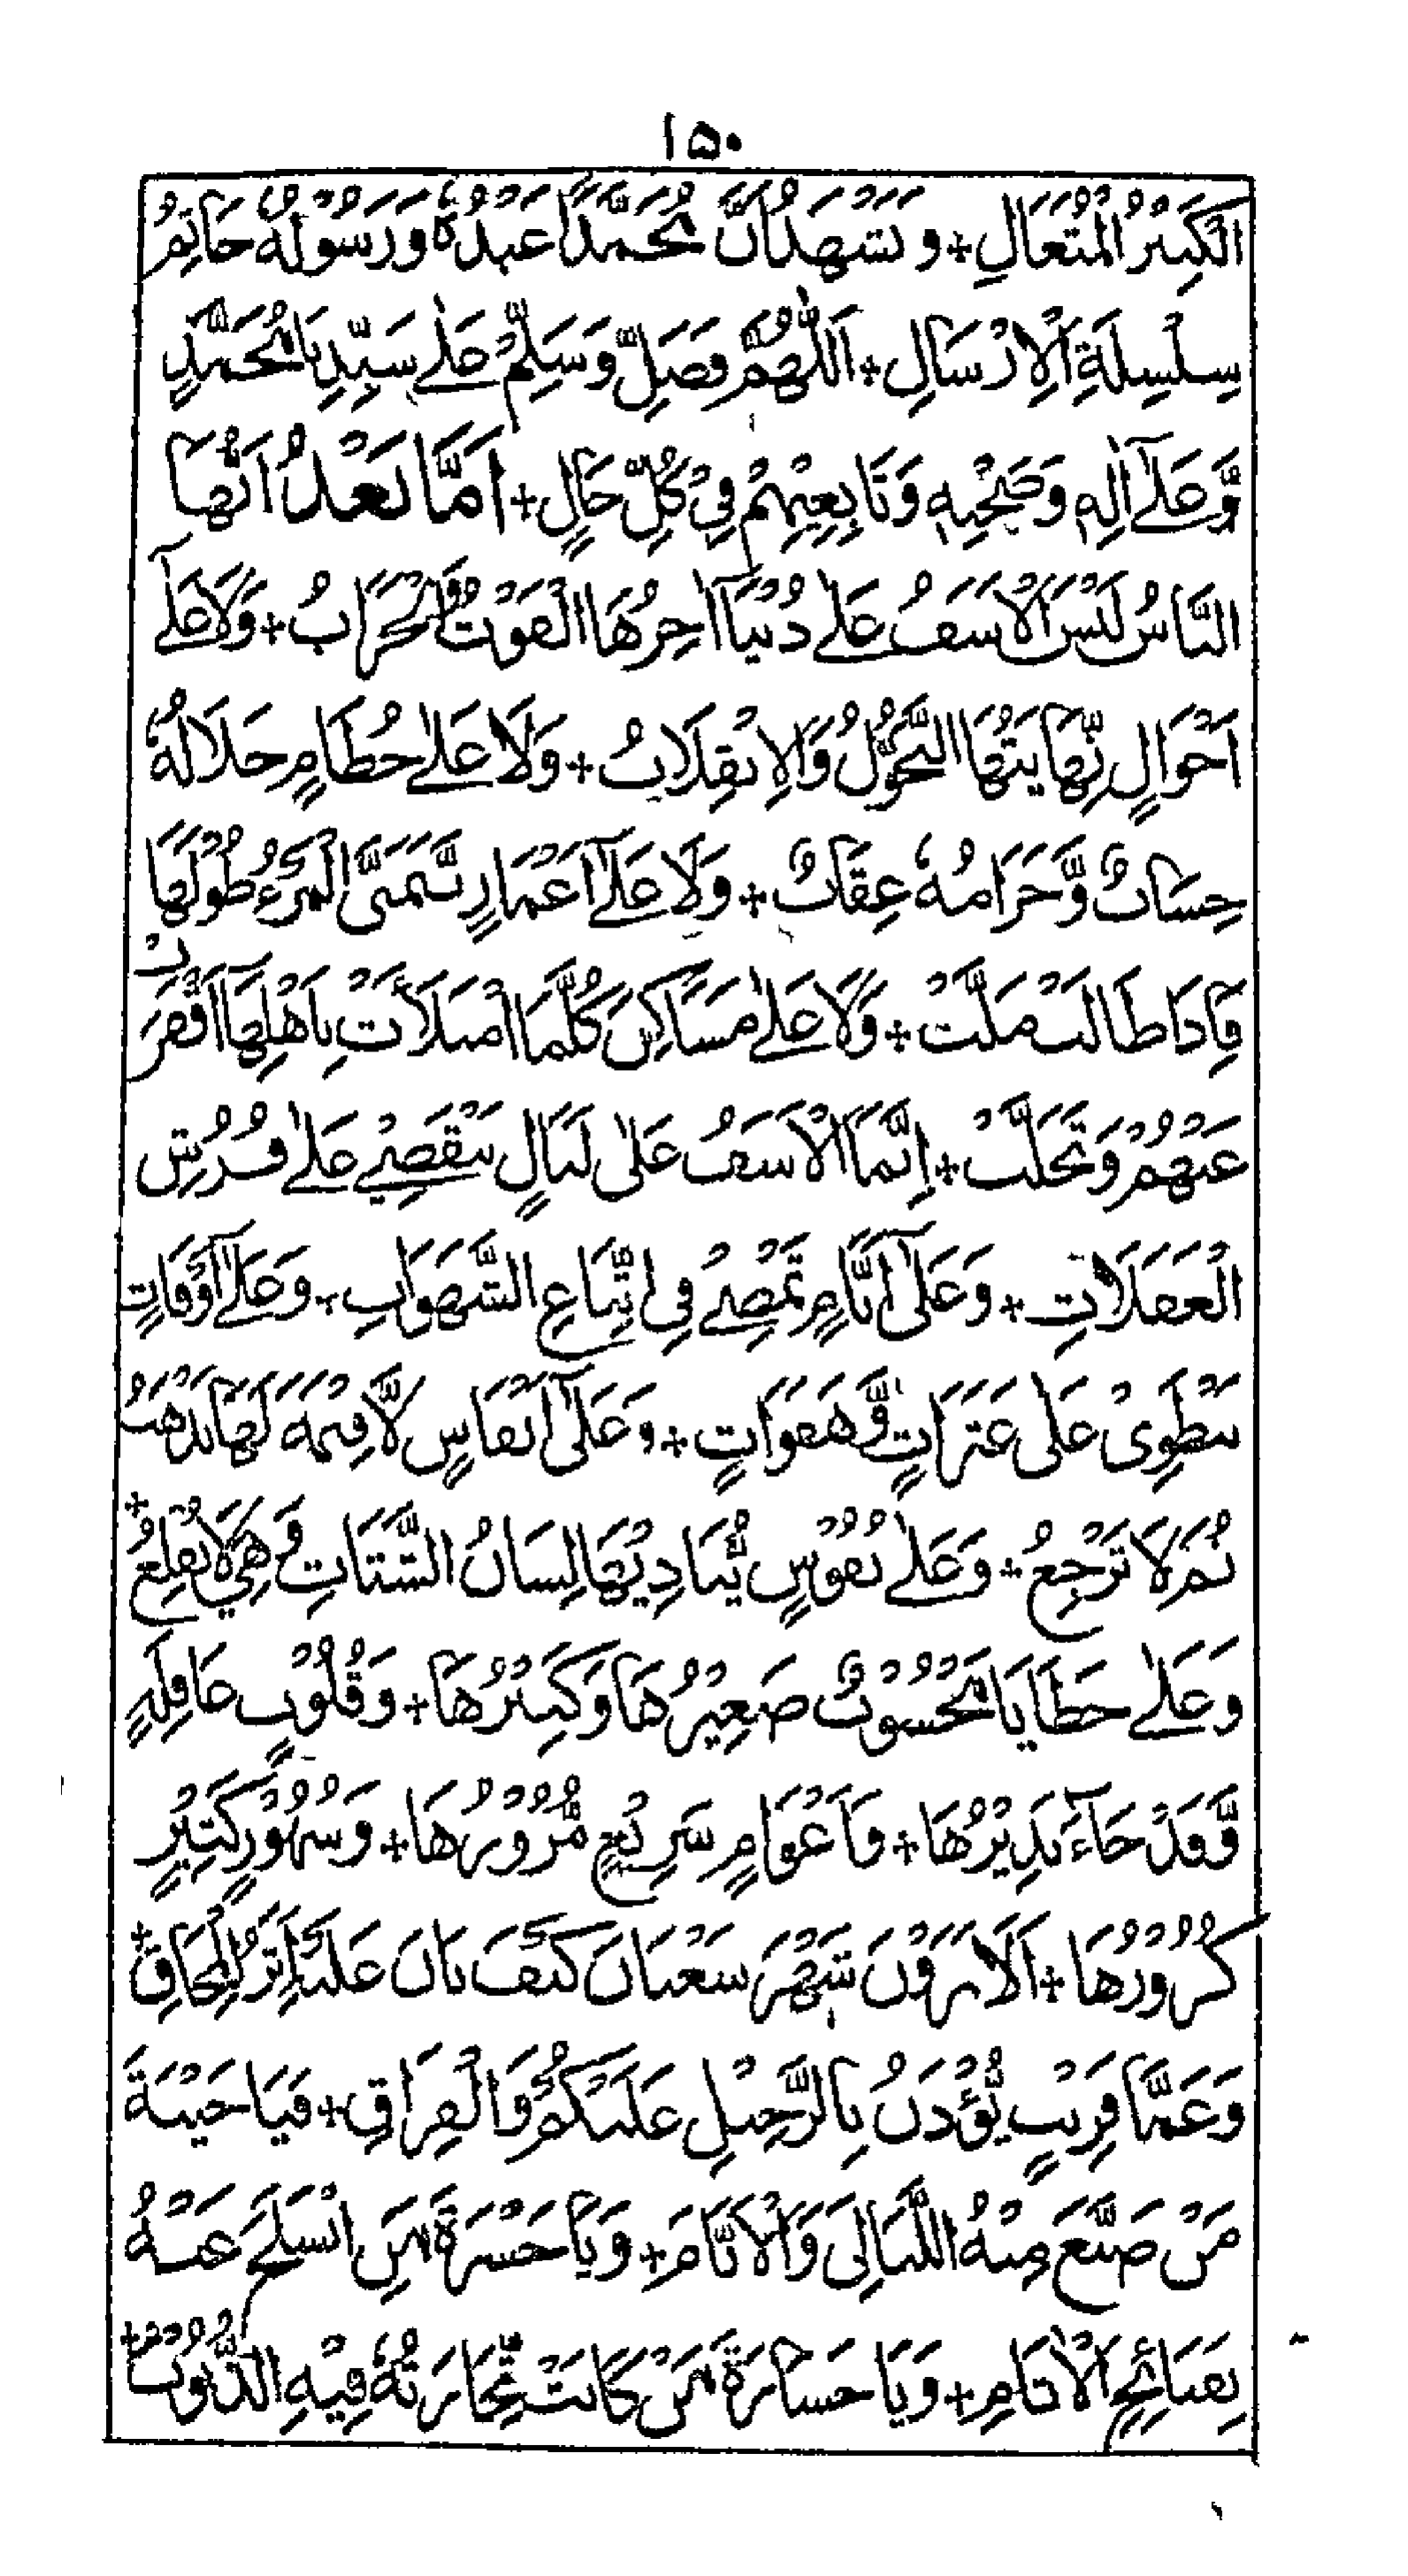 ۱۵۰
الْكَبِيْرُ الْمُتَعَالِ + وَنَشْهَدُ اَنَّ مُحَمَّدًا عَبْدُهٗ وَرَسُوْلُهٗ خَاتِمُ
سِلْسِلَةِ الْاِرْسَالِ + اَللّٰهُمَّ فَصَلِّ وَسَلِّمْ عَلٰے سَيِّدِنَا مُحَمَّدٍ
وَّعَلٰٓے اٰلِهٖ وَصَحْبِهٖ وَتَابِعِيْهِمْ فِيْ كُلِّ حَالٍ + اَمَّا بَعْدُ اَيُّهَا
النَّاسُ لَيْسَ الْاَسَفُ عَلٰے دُنْيَآ اٰخِرُهَا الْفَوْتُ وَالْخَرَابُ + وَلَا عَلٰٓے
اَحْوَالٍ نِّهَايَتُهَا التَّحَوُّلُ وَالْاِنْقِلَابُ + وَلَا عَلٰے حُطَامٍ حَلَالُهٗ
حِسَابٌ وَّحَرَامُهٗ عِقَابٌ + وَلَا عَلٰٓے اَعْمَارٍ يَّتَمَنَّى الْمَرْءُ طُوْلَهَا
فَاِذَا طَالَتْ مَلَّتْ + وَلَا عَلٰے مَسَاكِنَ كُلَّمَا امْتَلَاَتْ بِاَهْلِهَا اَقْفَرَتْ
عَنْهُمْ وَتَخَلَّتْ + اِنَّمَا الْاَسَفُ عَلٰى لَيَالٍ تَنْقَضِيْ عَلٰے فُرُشِ
الْغَفَلَاتِ + وَعَلٰٓى اَيَّامٍ تَمْضِيْ فِى اتِّبَاعِ الشَّهَوَاتِ + وَعَلٰٓے اَوْقَاتٍ
تَنْطَوِىْ عَلٰى عَثَرَاتٍ وَّهَفَوَاتٍ + وَعَلٰٓى اَنْفَاسٍ لَّا قِيْمَةَ لَهَا تَذْهَبُ
ثُمَّ لَا تَرْجِعُ + وَعَلٰے نُفُوْسٍ يُّنَادِيْهَا لِسَانُ الشَّتَاتِ وَهِيَ لَا تُقْلِعُ +
وَعَلٰے خَطَايَا مَحْسُوْبٌ صَغِيْرُهَا وَكَبِيْرُهَا + وَقُلُوْبٍ غَافِلَةٍ
وَّقَدْ جَآءَ نَذِيْرُهَا + وَاَعْوَامٍ سَرِيْعٍ مُّرُوْرُهَا + وَشُهُوْرٍ كَثِيْرٍ
كُرُوْرُهَا + اَلَا تَرَوْنَ شَهْرَ شَعْبَانَ كَيْفَ بَانَ عَلَيْهِ اَثَرُ الْمُحَاقِ +
وَعَمَّا قَرِيْبٍ يُّؤْذَنُ بِالرَّحِيْلِ عَلَيْكُمْ وَالْفِرَاقِ + فَيَا خَيْبَةَ
مَنْ ضَيَّعَ مِنْهُ اللَّيَالِىَ وَالْاَيَّامَ + وَيَا حَسْرَةَ مَنِ انْسَلَخَ عَنْهُ
بِقَبَائِحِ الْاٰثَامِ + وَيَا خَسَارَةَ مَنْ كَانَتْ تِجَارَتُهٗ فِيْهِ الذُّنُوْبُ +